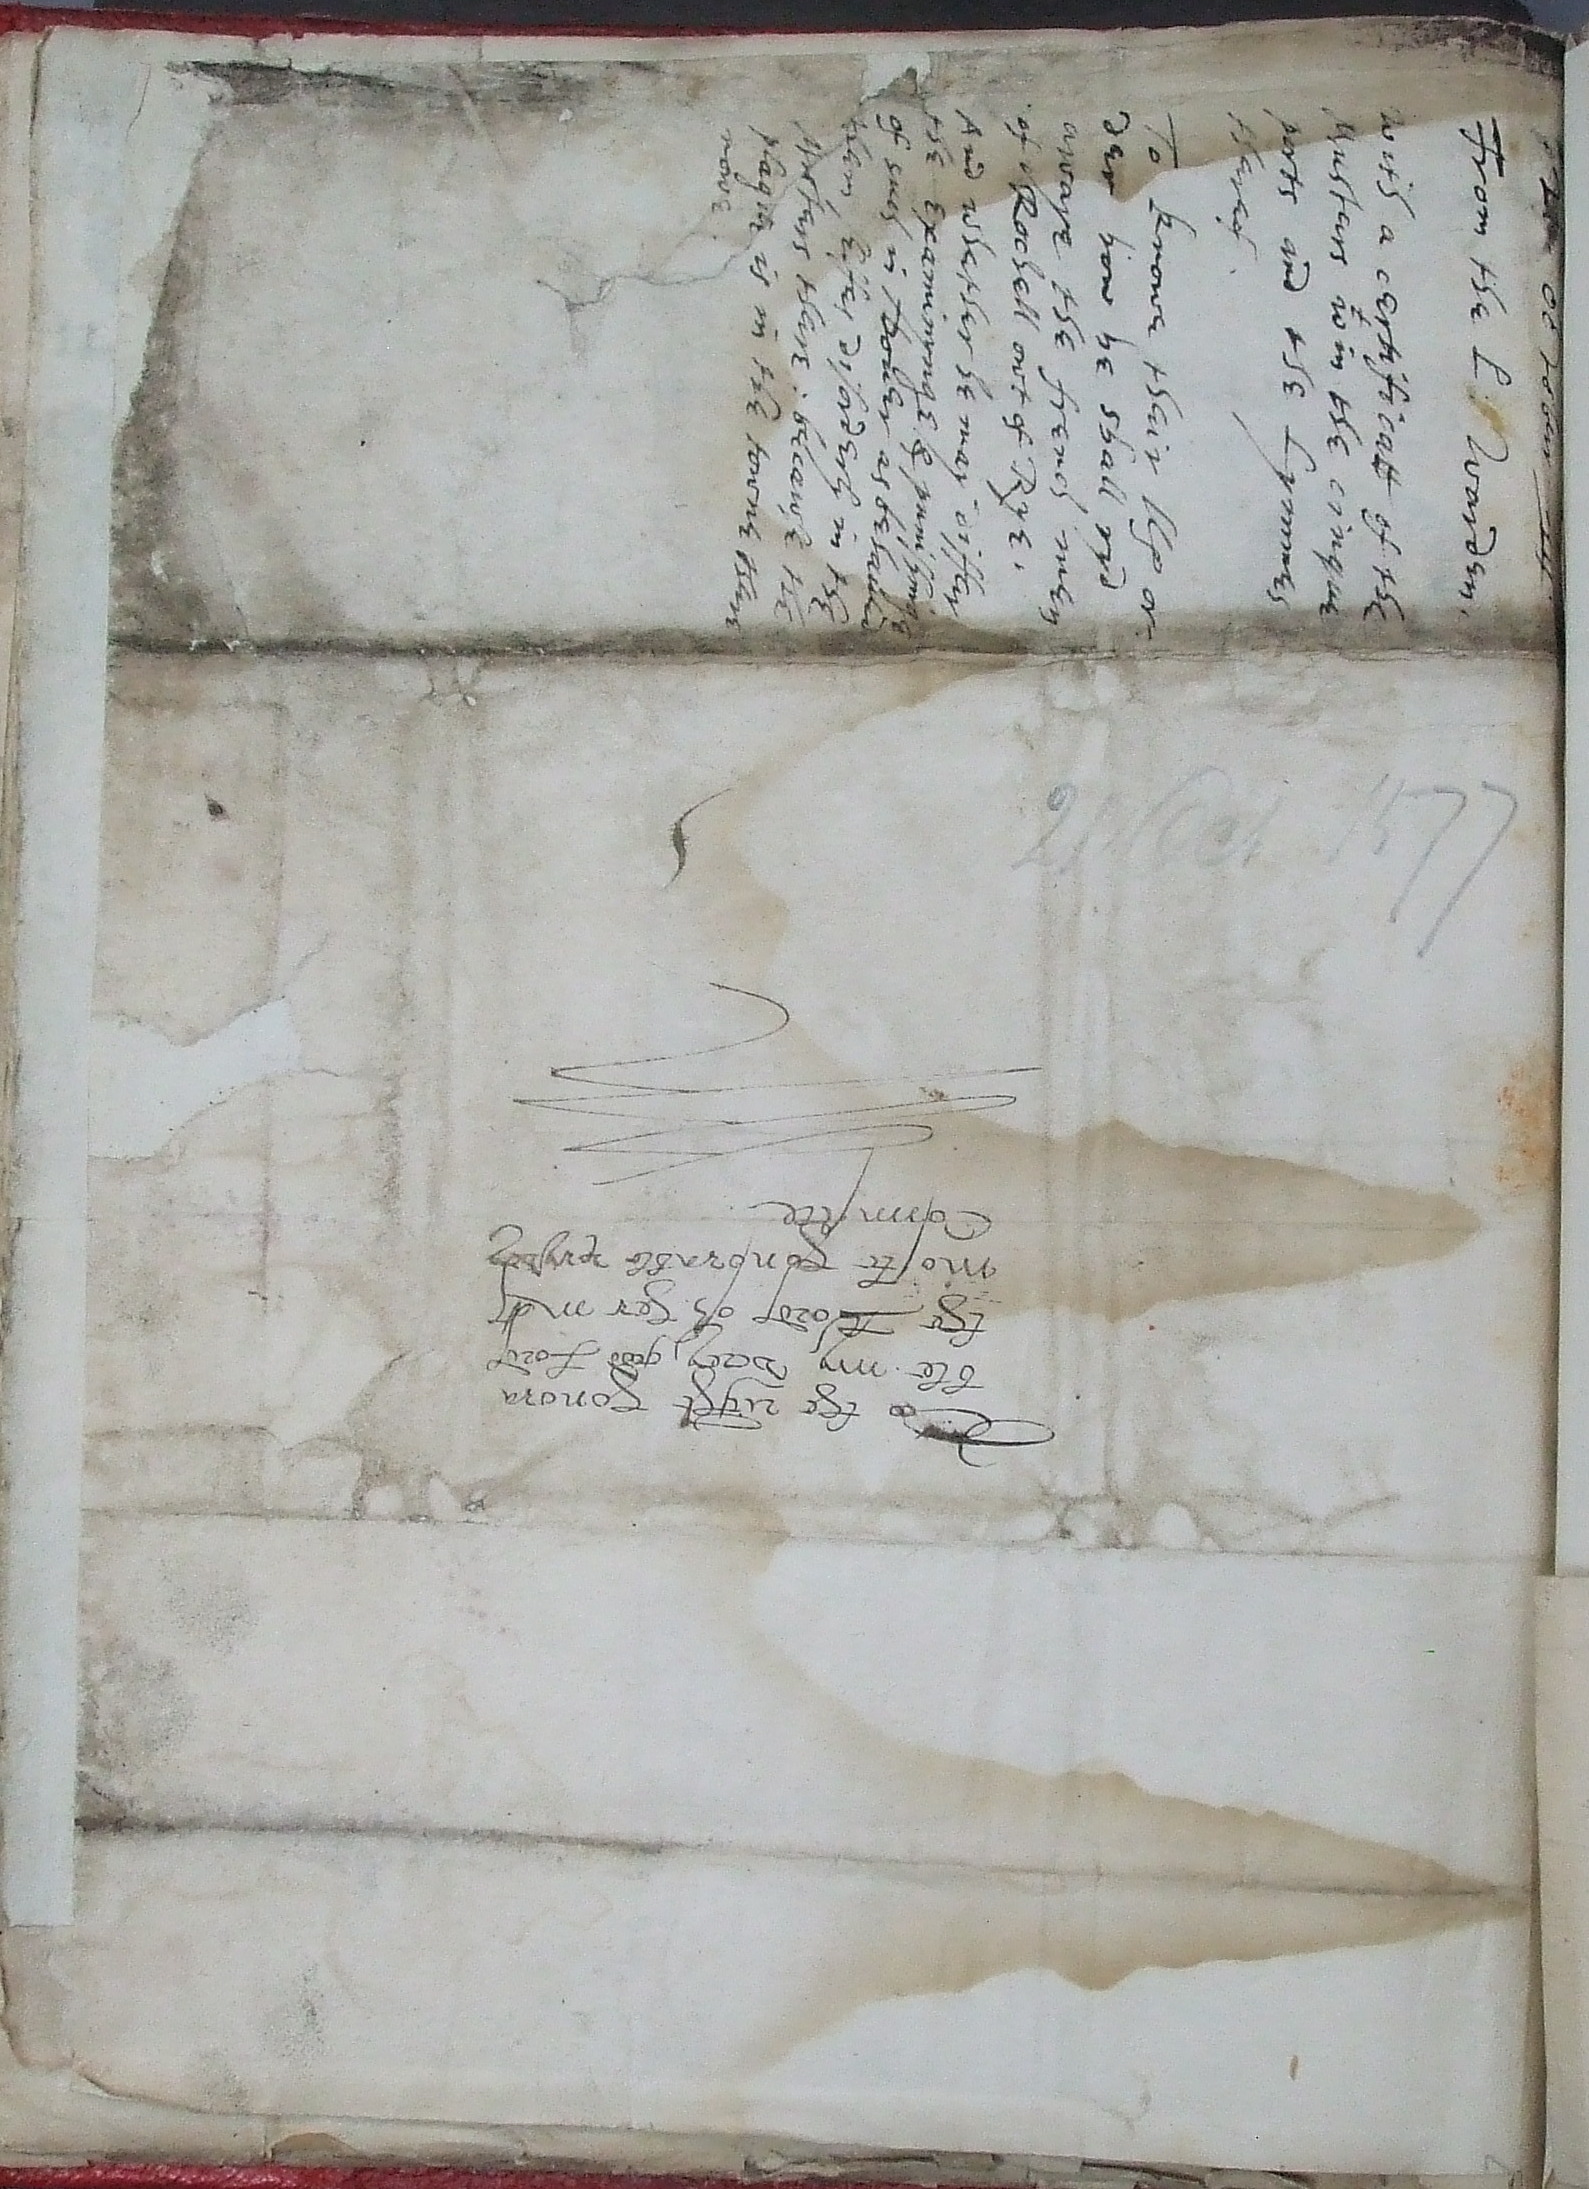 26 October 1577
From the L Warden.
with a certificatt of the
Musters win the cinque
ports and the Lymmes
therof.
To knowe their llps or-
der how he shall ryd
awaye the frenche men
of Rochell out of Rye.
And whether he may differ
the examinynge & punishinge
of suche in Dover as behaved
them selfes disorderly in the
Musters there: because the
plague is in the towne there
nowe.
21 Oct 1577
To the right honora
ble my verey good Lords
the Lords of her Mats
moste honorable pryvey
Counsell